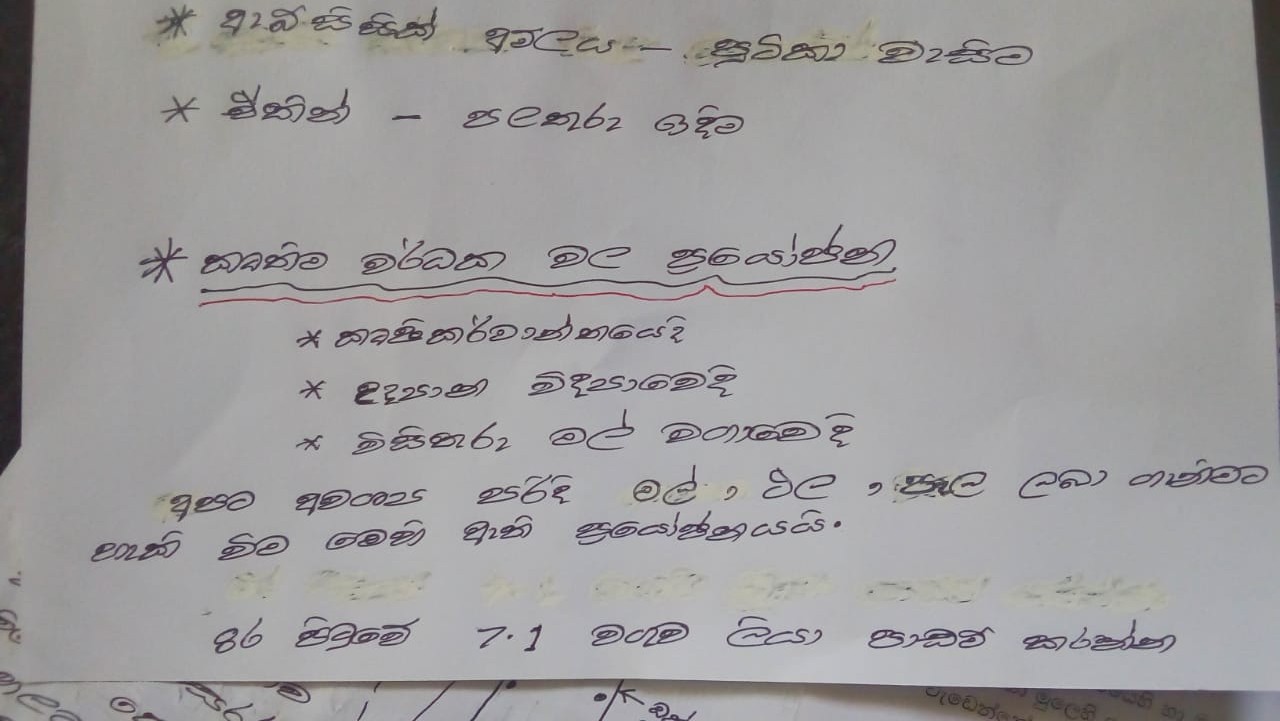 * ඇබ්සිසික් අම්ලය - පුටිකා වැසීම
* එතින් - පලතුරු ඉදීම
* කෘතිම වර්ධක වල ප්‍රයෝජන
* කෘෂිකර්මාන්තයෙදි
* උද්‍යාන විද්‍යාවෙදි
* විසිතුරු මල් වගාවෙදි
අපට අවශ්‍ය පරිදි මල්, ඵල, පැල ලබා ගැනීමට
හැකි වීම මෙහි ඇති ප්‍රයෝජනයයි.
පිටුවේ 7.1 වගුව ලියා පාඩම් කරන්න